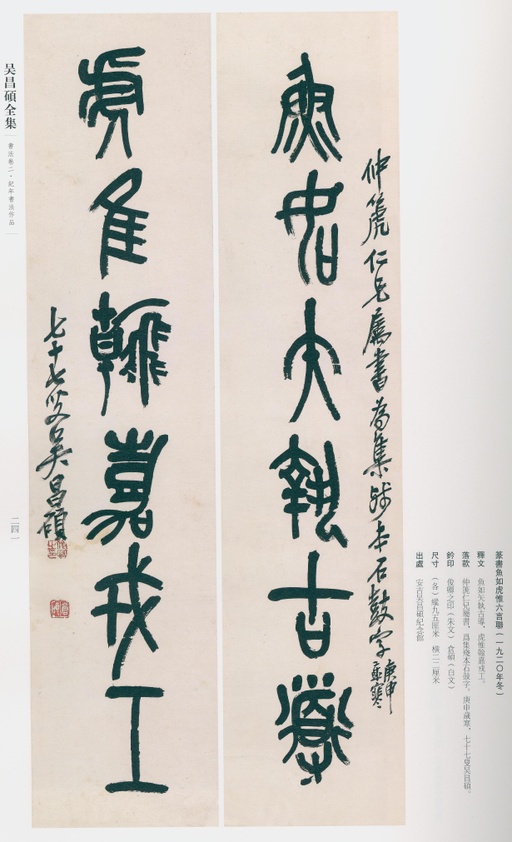 魚如大執古導
仲箎仁兄屬書為集殘本石鼓字
庚申
歲寒
虎隹翰嘉戎工
七十七叟吴昌碩
篆書魚如虎惟六言聯(一九二〇年冬)
釋文 魚如矢執古導,虎惟翰嘉戎工。
落款 仲箎仁兄屬書,爲集殘本石鼓字。庚申歲寒,七十七叟吴昌碩。
鈐印 俊卿之印(朱文) 倉碩(白文)
尺寸 (各)縱九五厘米 橫二二厘米
出處 安吉吴昌碩紀念館
吴昌碩全集
書法卷二·紀年書法作品
二四一